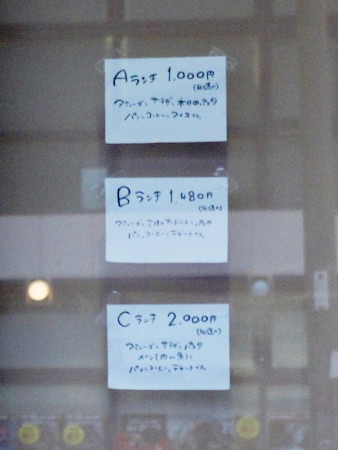 Aランチ 1,000円
(税込み)
アミューズ、サラダ、本日のパスタ
パン、コーヒー、アイス
Bランチ 1,480円
(税込み)
アミューズ、パスタ
パン、コーヒー、デザート
Cランチ 2,000円
(税込み)
アミューズ、サラダ、パスタ
メイン(肉or魚)、
パン、コーヒー、デザート